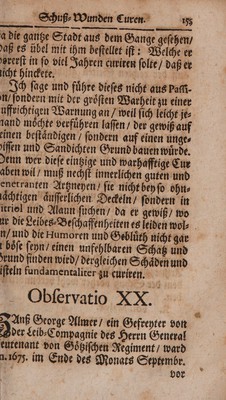 Schuß-Wunden Curen. 153
da die gantze Stadt aus dem Gange gesehen/
daß es übel mit ihm bestellet ist: Welche er
vorerst in so viel Jahren curiren solte / daß er
nicht hinckete.
Ich sage und führe dieses nicht aus Passi-
on / sondern mit der grösten Warheit zu einer
auffrichtigen Warnung an / weil sich leicht je-
mand möchte verführen lassen / der gewiß auf
einen beständigen / sondern auf einen unge-
wissen und Sandichten Grund bauen würde.
Denn wer diese eintzige und warhafftige Cur
haben wil / muß nechst innerlichen guten und
penetranten Artzneyen / sie nicht bey so ohn-
mächtigen äusserlichen Deckeln / sondern in
Vitriol und Alaun suchen / da er gewiß / wo
nur die Leibes-Beschaffenheiten es leiden wol-
len / und die Humoren und Geblüth nicht gar
zu böse seyn / einen unfehlbaren Schatz und
Grund finden wird / dergleichen Schäden und
Fisteln fundamentaliter zu curiren.
Observatio XX.
HAnß George Almer / ein Gefreyter von
der Leib-Compagnie des Herrn General
Lieutenant von Götzischen Regiment / ward
An. 1675. im Ende des Monats Septembr.
vor